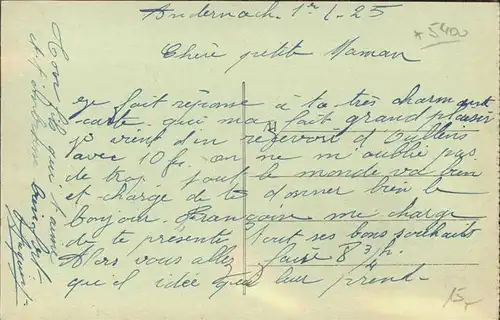 Andernach. 1er 1. 25
*5400
Chère petite Maman
Je fait réponse à ta très charmante
carte. qui ma fait grand plaisir
je viens d'en recevoir d'Oullins
avec 10 fr. on ne m'oublie pas
de trop. tout le monde va bien
et charge de te donner bien le
bonjour. Françoise me charge
de te présenter tout ses bons souhaits
Alors vous allez faire 8 3/4 h.
qu'il idée que leur prend.
Ton fils qui t'aime
et t'embrasse bien fort.
15,-